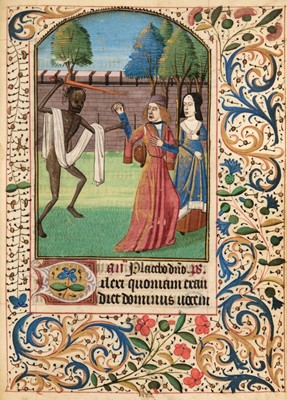 añ Placebo dño. ps.
ilexi quoniam exau
diet dominus uocem